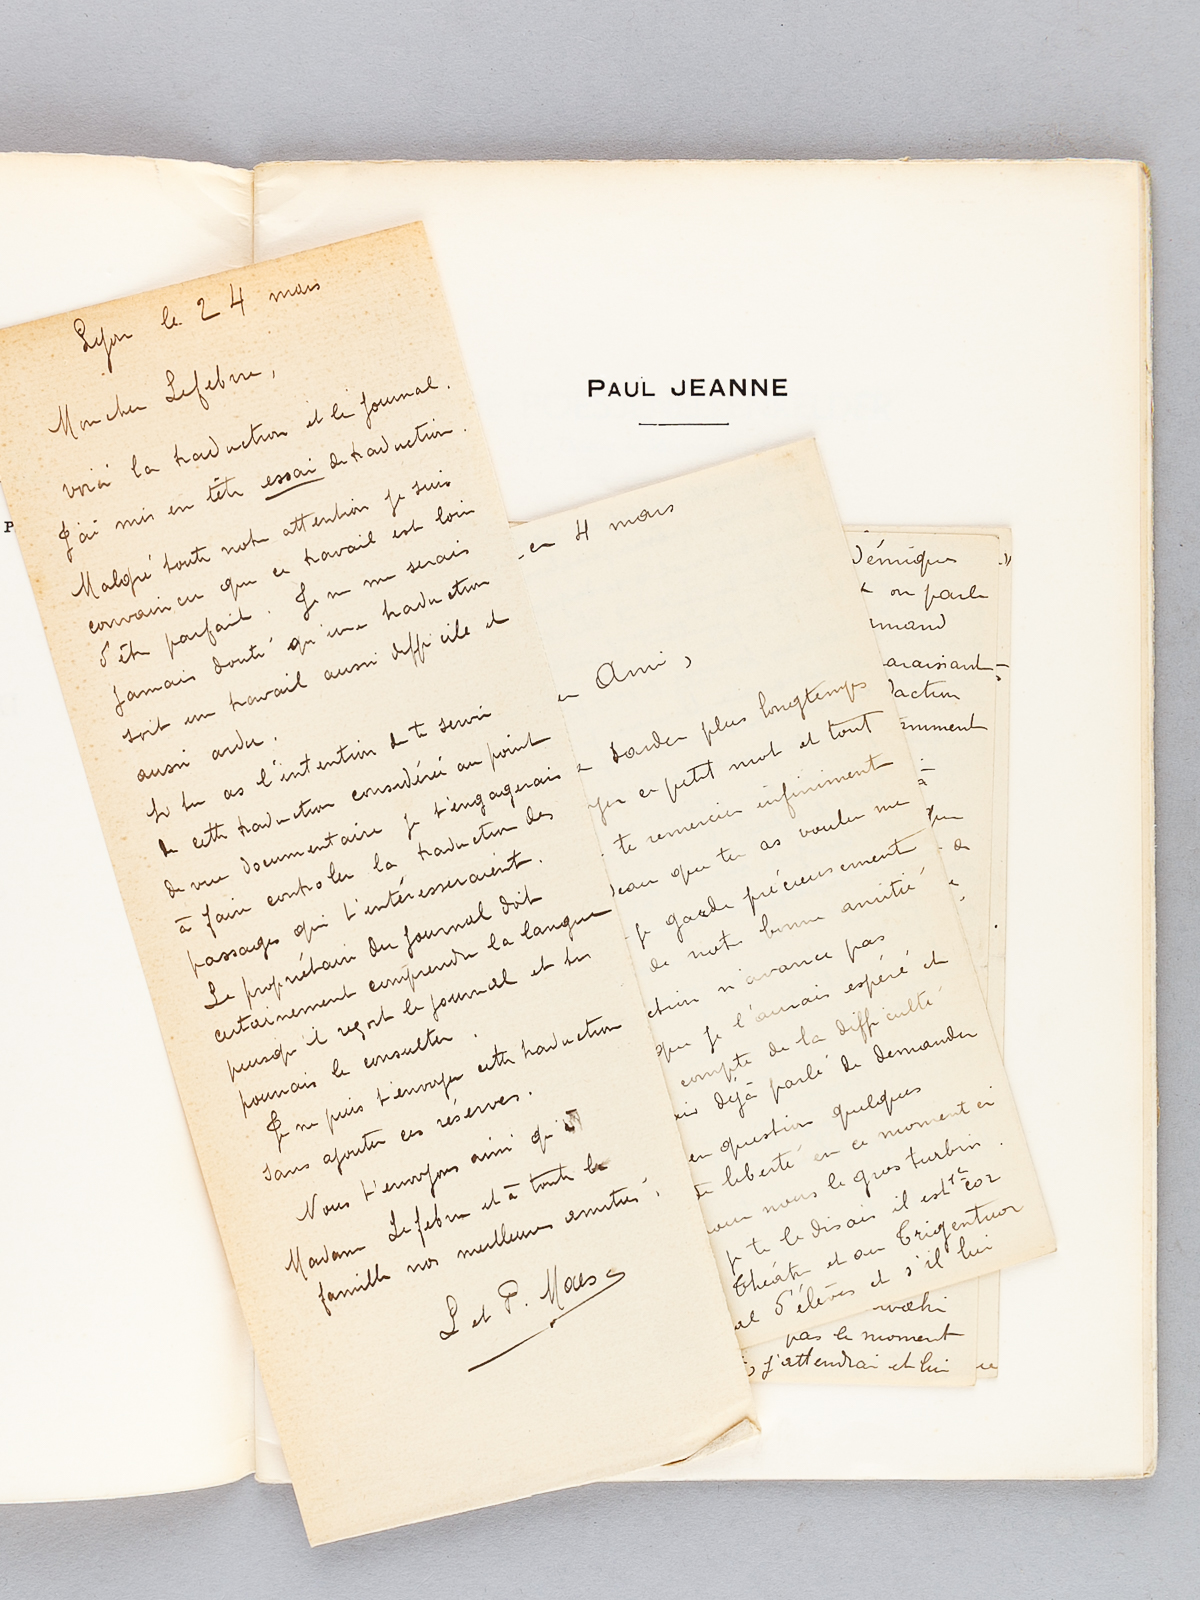 P
PAUL JEANNE
Lyon le 24 mars
Mon cher Lefebvre,
voici la traduction et le journal.
J'ai mis en tête essai de traduction.
Malgré toute notre attention je suis
convaincu que ce travail est loin
d'être parfait. Je ne me serais
jamais douté qu'une traduction
soit un travail aussi difficile et
aussi ardu.
Si tu as l'intention de te servir
de cette traduction considérée au point
de vue documentaire je t'engagerais
à faire controler la traduction des
passages qui t'intéresseraient.
Le propriétaire du journal doit
certainement comprendre la langue
puisqu'il reçoit le journal et tu
pourrais le consulter.
Je ne puis t'envoyer cette traduction
sans ajouter ces réserves.
Nous t'envoyons ainsi qu'à
Madame Lefebvre et à toute la
famille nos meilleures amitiés.
L et P. Maes
4 mars
Ami,
tarder plus longtemps
ce petit mot et tout
te remercier infiniment
que tu as voulu me
je garde précieusement
de notre bonne amitié
n'avance pas
que je l'aurais espéré et
compte de la difficulté
déjà parlé de demander
en question quelques
liberté en ce moment ci
nous le gros turbin.
je te le disais il est 1r cor
Théâtre et au
d'élèves et s'il lui
on parle
action
pas le moment
j'attendrai et lui